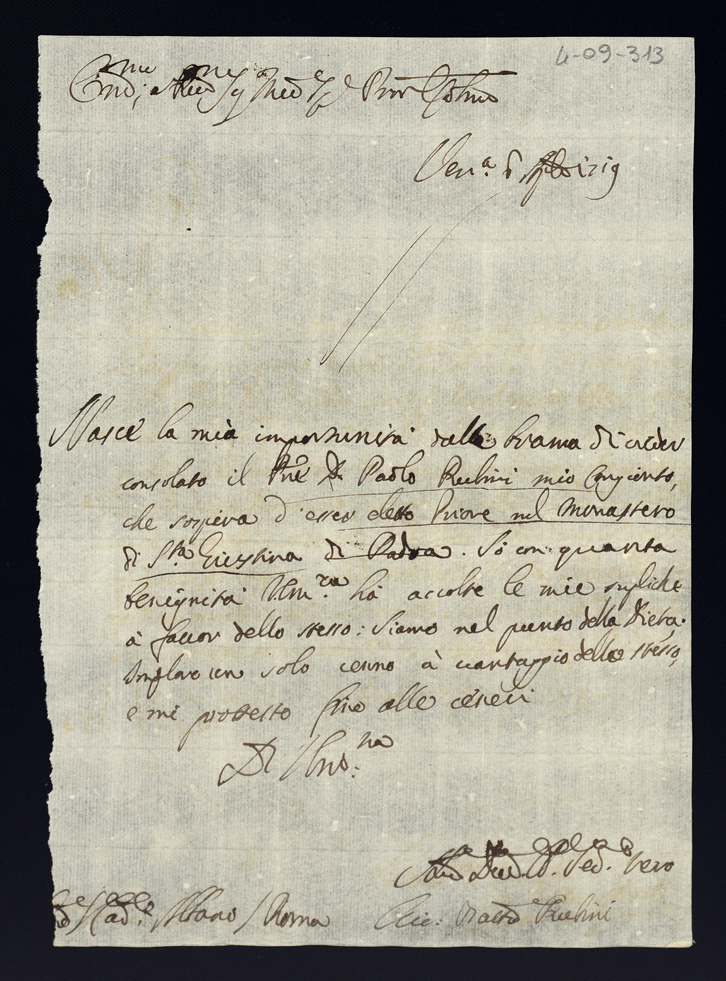 4-09-313
Ven.a 6 1719
Nasce la mia importunità dalla brama di veder
consolato il Pre D. Paolo Rubini mio Congionto,
che sospira d'esser eletto Priore nel Monastero
di Sta Giustina di Padoa. Sò con quanta
benignità V. Em.za hà accolte le mie supliche
à favor dello stesso: Siamo nel punto della Dieta.
Imploro un solo cenno à vantaggio dello stesso,
e mi protesto sino alle ceneri
Di V. Em.za
Serv.e vero
Albano / Roma Rubini